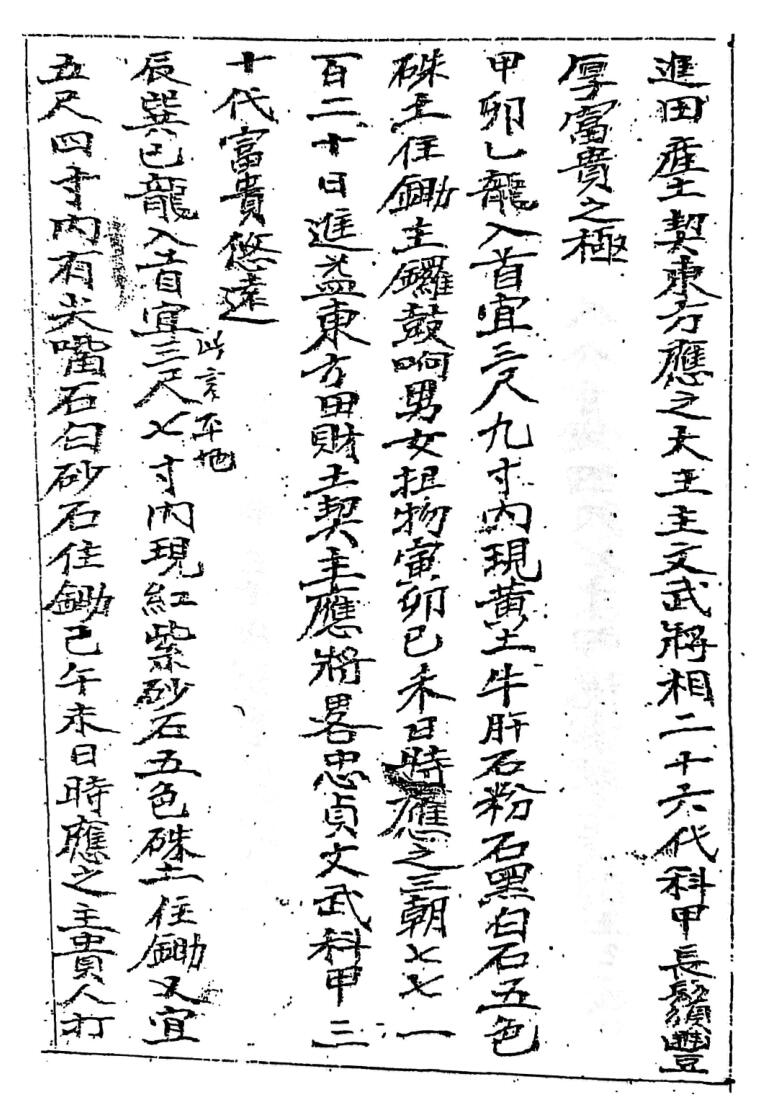 進田產土契東方應之大主主文武將相二十六代科甲長鬚豐
厚富貴之極
甲卯乙龍入首宜三尺九寸內現黄土牛肝石粉石黑白石五色
硃土住鋤主鑼鼓响男女担物寅卯巳未日時應之三朝七七一
百二十日進益東方田財土契主應將畧忠貞文武科甲三
十代富貴悠遠
此言平地
辰巽巳龍入首宜三尺七寸內現紅紫砂石五色硃土住鋤又宜
五尺四寸內有尖嘴石白砂石住鋤己午未日時應之主貴人打